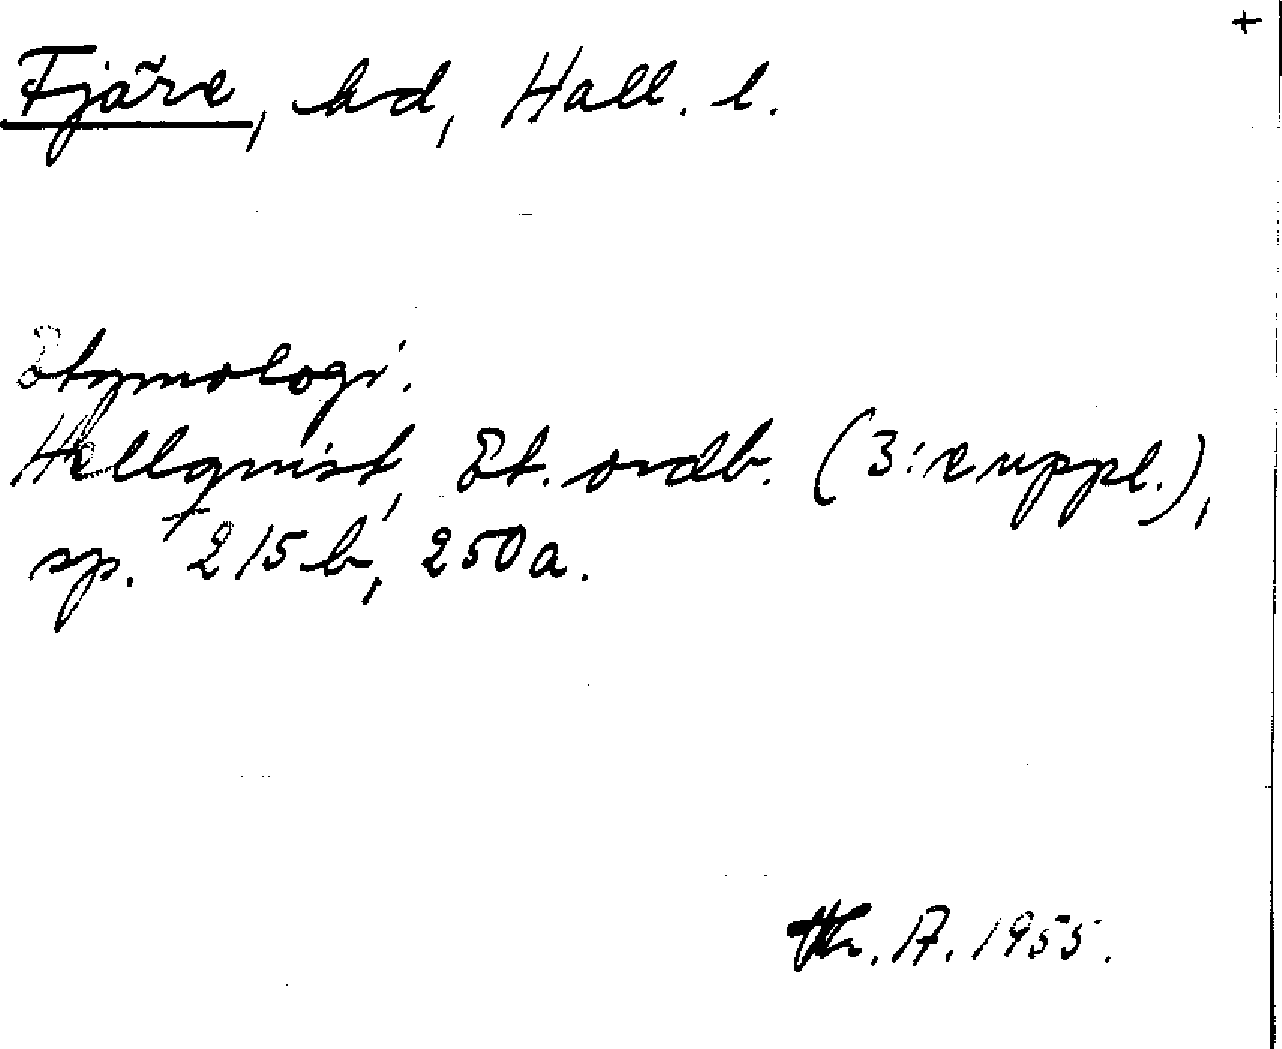 +
Fjäre, hd, Hall. l.
Etymologi.
Hellquist, Et. ordb. (3:e uppl.),
sp. 215 b, 250a.
Th. A. 1955.